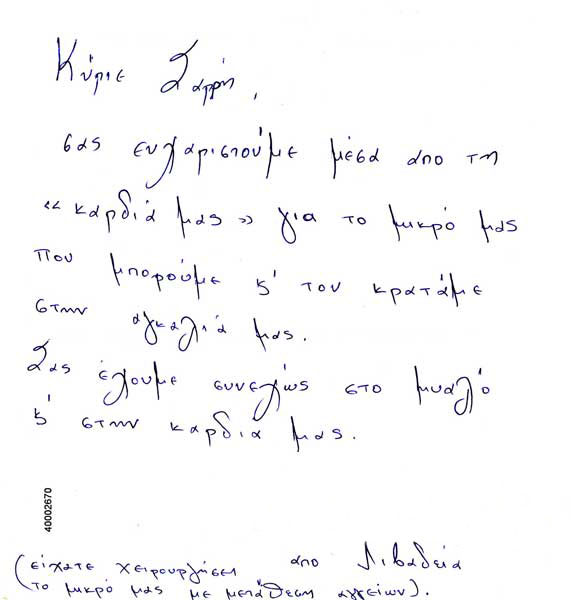 Κύριε Σαρρή,
σας ευχαριστούμε μέσα απο τη
« καρδιά μας » για το μικρό μας
που μπορούμε κ' τον κρατάμε
στην αγκαλιά μας.
Σας έχουμε συνεχώς στο μυαλό
κ' στην καρδιά μας.
40002670
(είχατε χειρουργήσει απο Λιβαδειά
το μικρό μας με μετάθεση αγγείων).